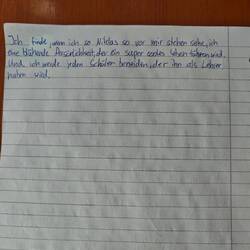 Ich finde wenn ich so Niklas so vor mir stehen sehe, ich
eine blühende Persönlichkeit, der ein super cooles leben führen wird.
Und ich werde jeden Schüler beneiden, der ihn als Lehrer
haben wird.